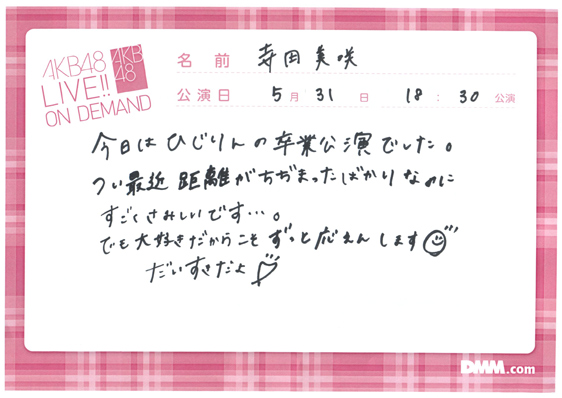 AKB48
LIVE!!
ON DEMAND
AKB
48
名前 寺田美咲
公演日 5月31日 18:30公演
今日はひじりんの卒業公演でした。
つい最近距離がちぢまったばかりなのに
すごくさみしいです…。
でも大好きだからこそずっと応えんします
だいすきだよ
DMM.com